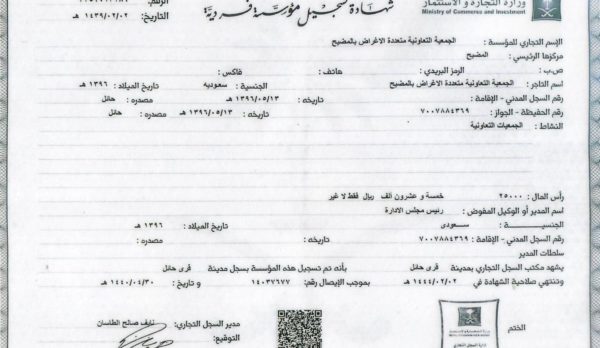 وزارة التجارة والاستثمار
Ministry of Commerce and Investment
شهادة تسجيل مؤسسة فردية
الرقم:
التاريخ: ١٤٣٩/٠٢/٠٢ هـ
الإسم التجاري للمؤسسة: الجمعية التعاونية متعددة الاغراض بالمضيح
مركزها الرئيسي: المضيح
ص.ب: الرمز البريدي: هاتف: فاكس:
اسم التاجر: الجمعية التعاونية متعددة الاغراض بالمضيح الجنسية: سعوديه تاريخ الميلاد: ١٣٩٦ هـ
رقم السجل المدني - الإقامة: تاريخه: ١٣٩٦/٠٥/١٣ هـ مصدره: حائل
رقم الحفيظة - الجواز: ٧٠٠٧٨٨٤٣٦٩ تاريخه: ١٣٩٦/٠٥/١٣ هـ مصدره: حائل
النشاط: الجمعيات التعاونية
رأس المال: ٢٥٠٠٠ خمسة و عشرون ألف ريال فقط لا غير
اسم المدير أو الوكيل المفوض: رئيس مجلس الادارة
الجنسية: سعودى تاريخ الميلاد: ١٣٩٦ هـ
رقم السجل المدني - الإقامة: ٧٠٠٧٨٨٤٣٦٩ تاريخه: مصدره:
سلطات المدير
يشهد مكتب السجل التجاري بمدينة قرى حائل بأنه تم تسجيل هذه المؤسسة بسجل مدينة قرى حائل
وتنتهي صلاحية الشهادة في ١٤٤٤/٠٢/٠٢ هـ بموجب الإيصال رقم: ١٤٠٣٧٦٧٧ و تاريخ: ١٤٤٠/٠٤/٣٠ هـ
الختم
مدير السجل التجاري: نايف صالح الطاسان
التوقيع: